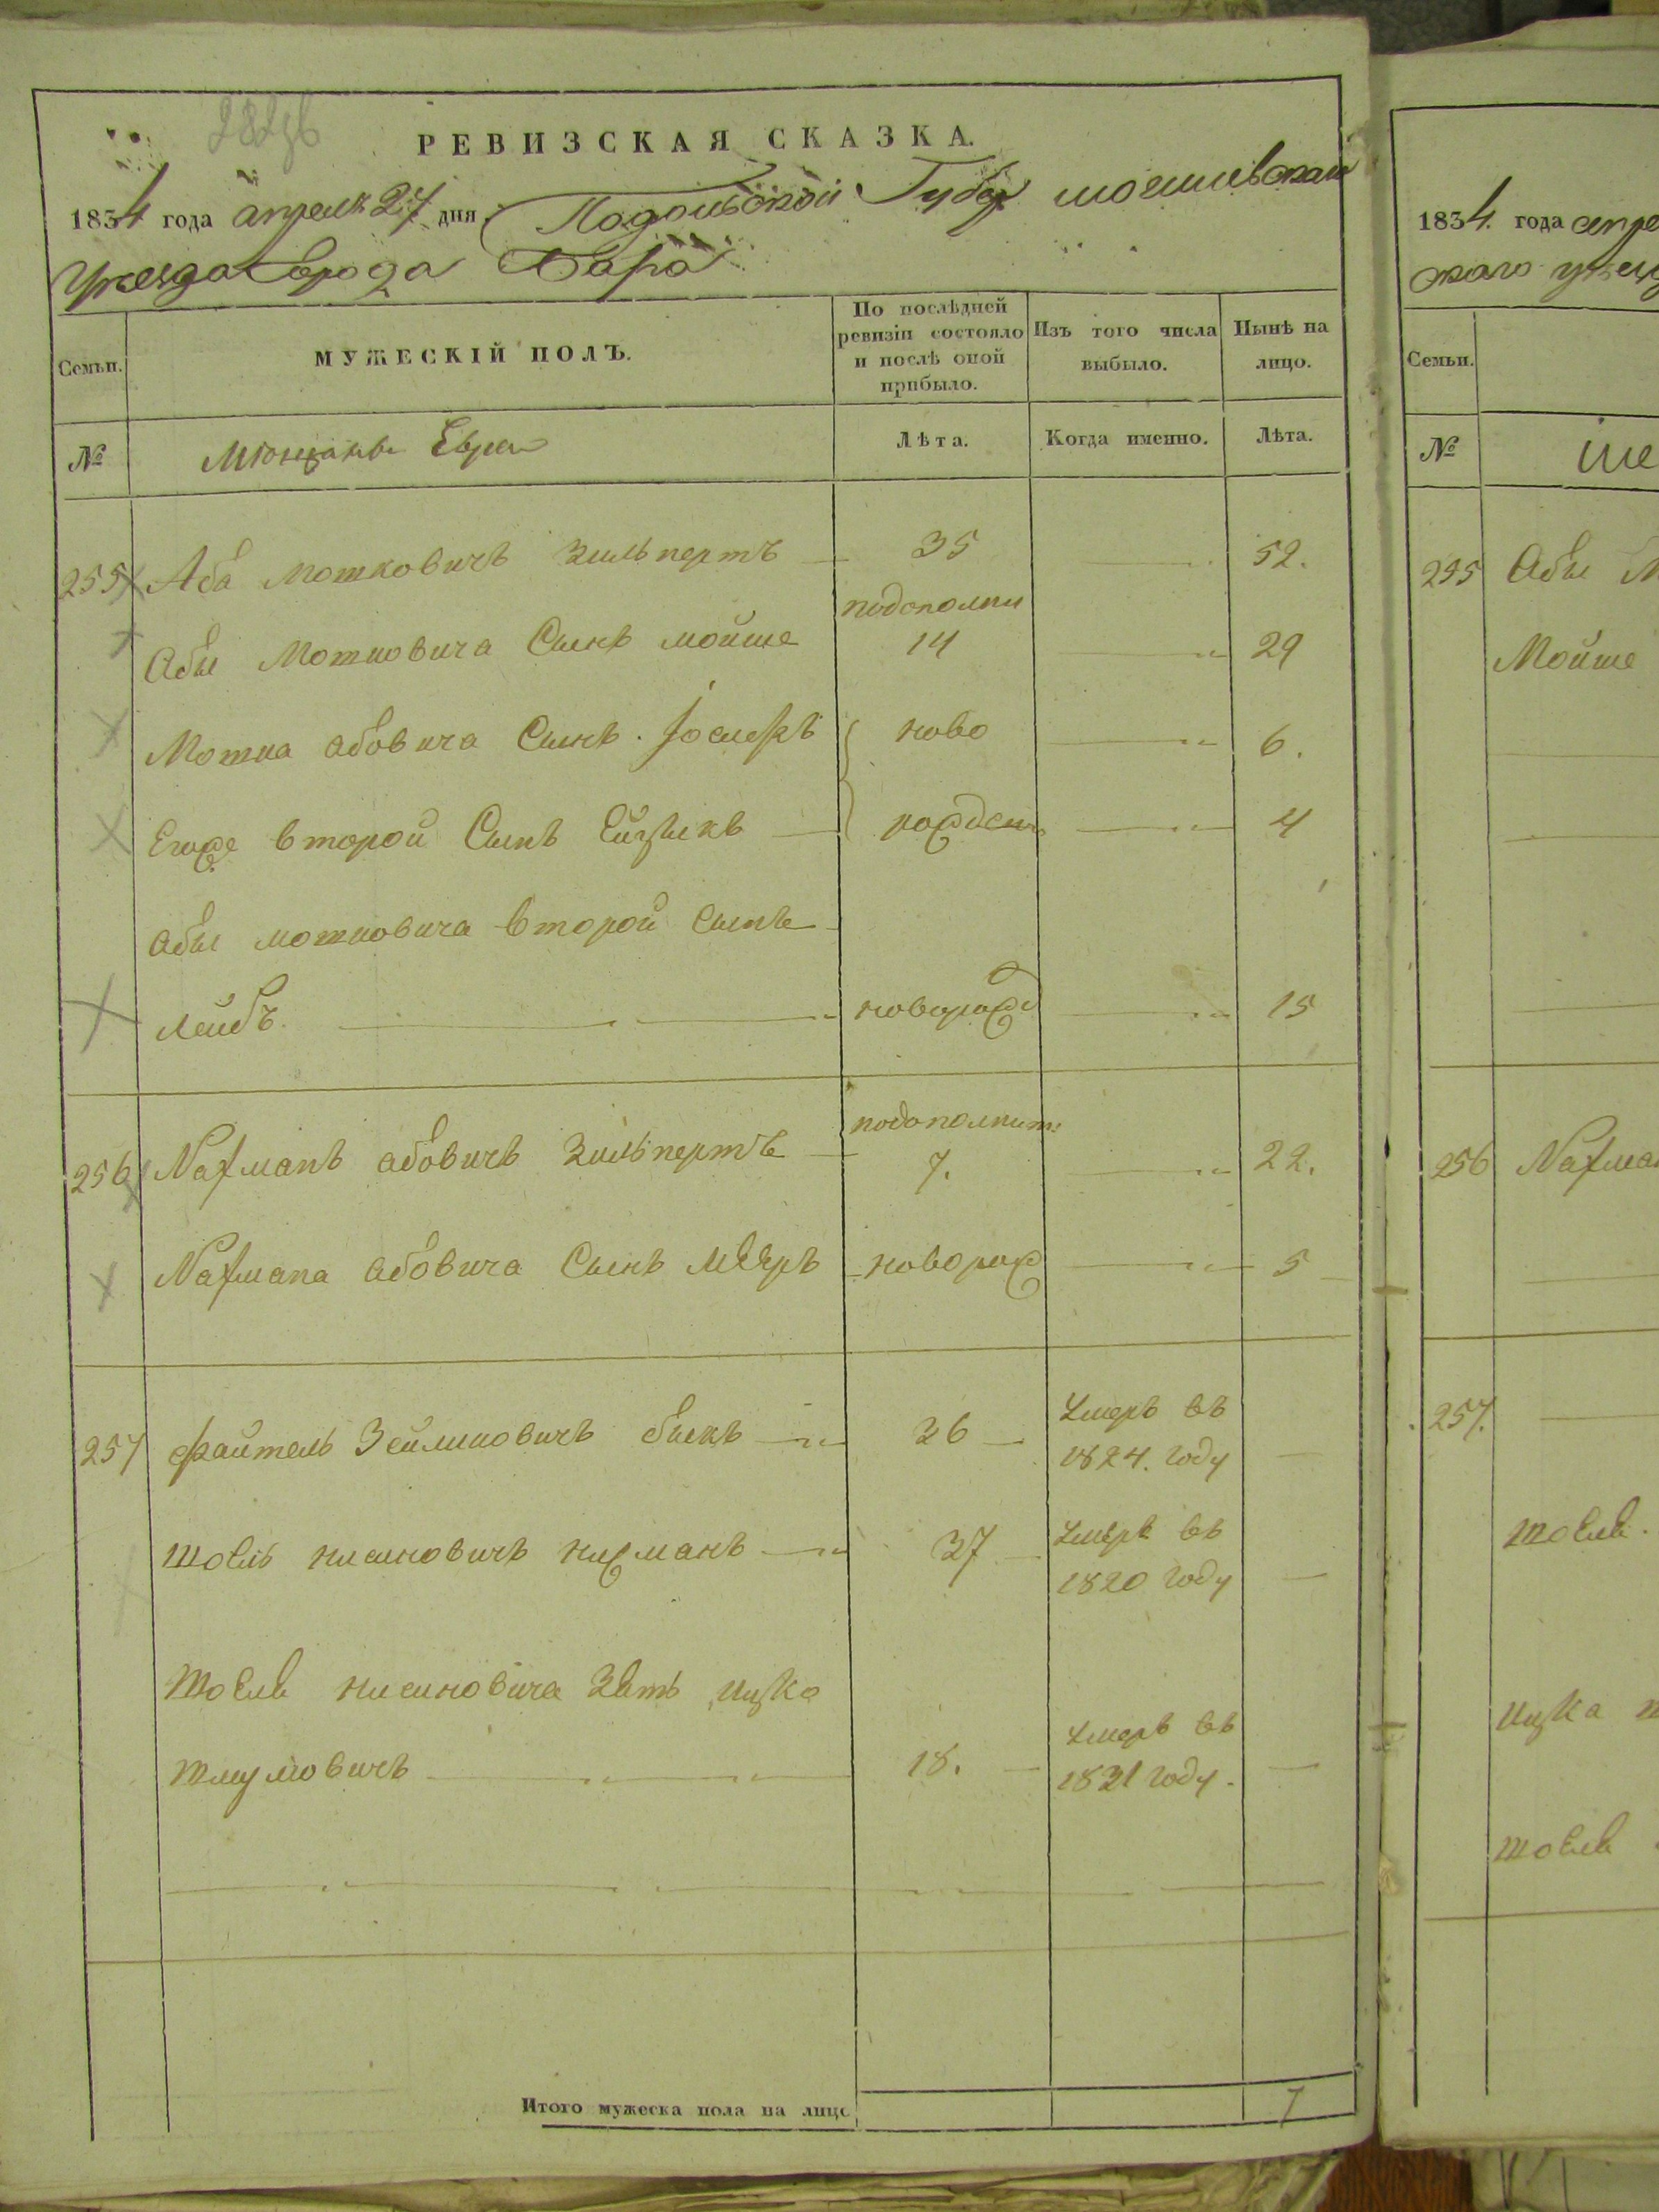 РЕВИЗСКАЯ СКАЗКА.
1834 года апреля 27 дня Подольской Губер могилевскаго
Уезда Города Бара
Семьи.
МУЖЕСКІЙ ПОЛЪ.
По послѣдней ревизіи состояло и послѣ оной прибыло.
Изъ того числа выбыло.
Нынѣ на лицо.
№
Мѣщанъ Евреи
Лѣта.
Когда именно.
Лѣта.
255 Аба Мошковичъ Зильпертъ 35 52.
подополни
Абы Мошковича Сынъ мойше 14 29
Мошка абовича Сынъ. Іосифъ ново 6.
Егоже второй Сынъ Ейзыкъ рожден 4
Абы мошковича второй сынъ
лейбъ. новорожд 15
подополнит:
256 Nахманъ абовичъ Зильпертъ 7. 22.
Nахмана абовича Сынъ мееръ новорож 5
257 Файтель Зейликовичъ быкъ 26 Умеръ въ
1824. году
шоель нисиновичъ 37 Умеръ въ
1820 году
Шоеля нисиновича Зять ицко
Шмулiовичъ 18. Умеръ въ
1821 году.
Итого мужеска пола на лицо 7
1834. года апре
скаго уезд
Семьи.
№
же
255 Абы М
Мойше
256 Nахман
257.
Шоеля
ицка
шоеля